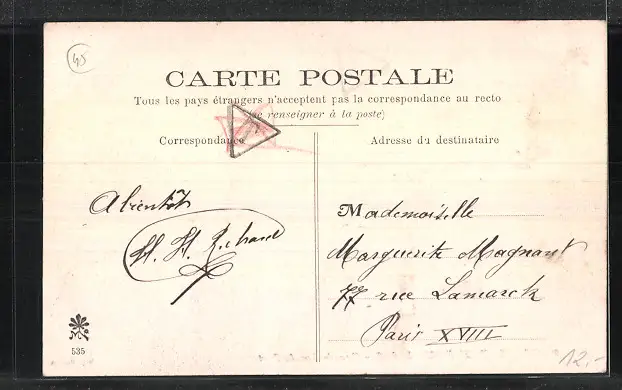 45
CARTE POSTALE
Tous les pays étrangers n'acceptent pas la correspondance au recto
(Se renseigner à la poste)
Correspondance
Adresse du destinataire
A bientôt
H. H. Richard
Mademoiselle
Marguerite Magnant
77 rue Lamarck
Paris XVIII
M
535
12,-